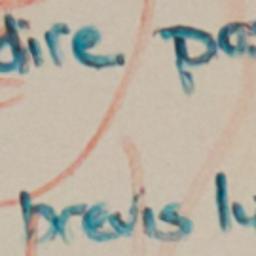 dire pas
previs lu